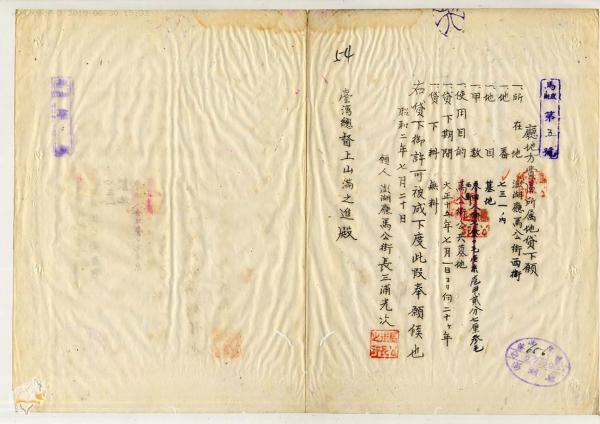 廳地方費所属地貸下願
一、所在地 澎湖廳馬公街西衛
一、地番 七三一ノ内
一、地目 墓地
一、甲数
一、使用目的 馬公街公共墓地
一、貸下期間 大正十五年七月一日ヨリ向二十ヶ年
一、貸下料 無料
右貸下御許可被成下度此段奉願候也
昭和二年七月二十日
願人 澎湖廳馬公街長三浦光次
臺灣總督上山滿之進殿
54
第五號
656